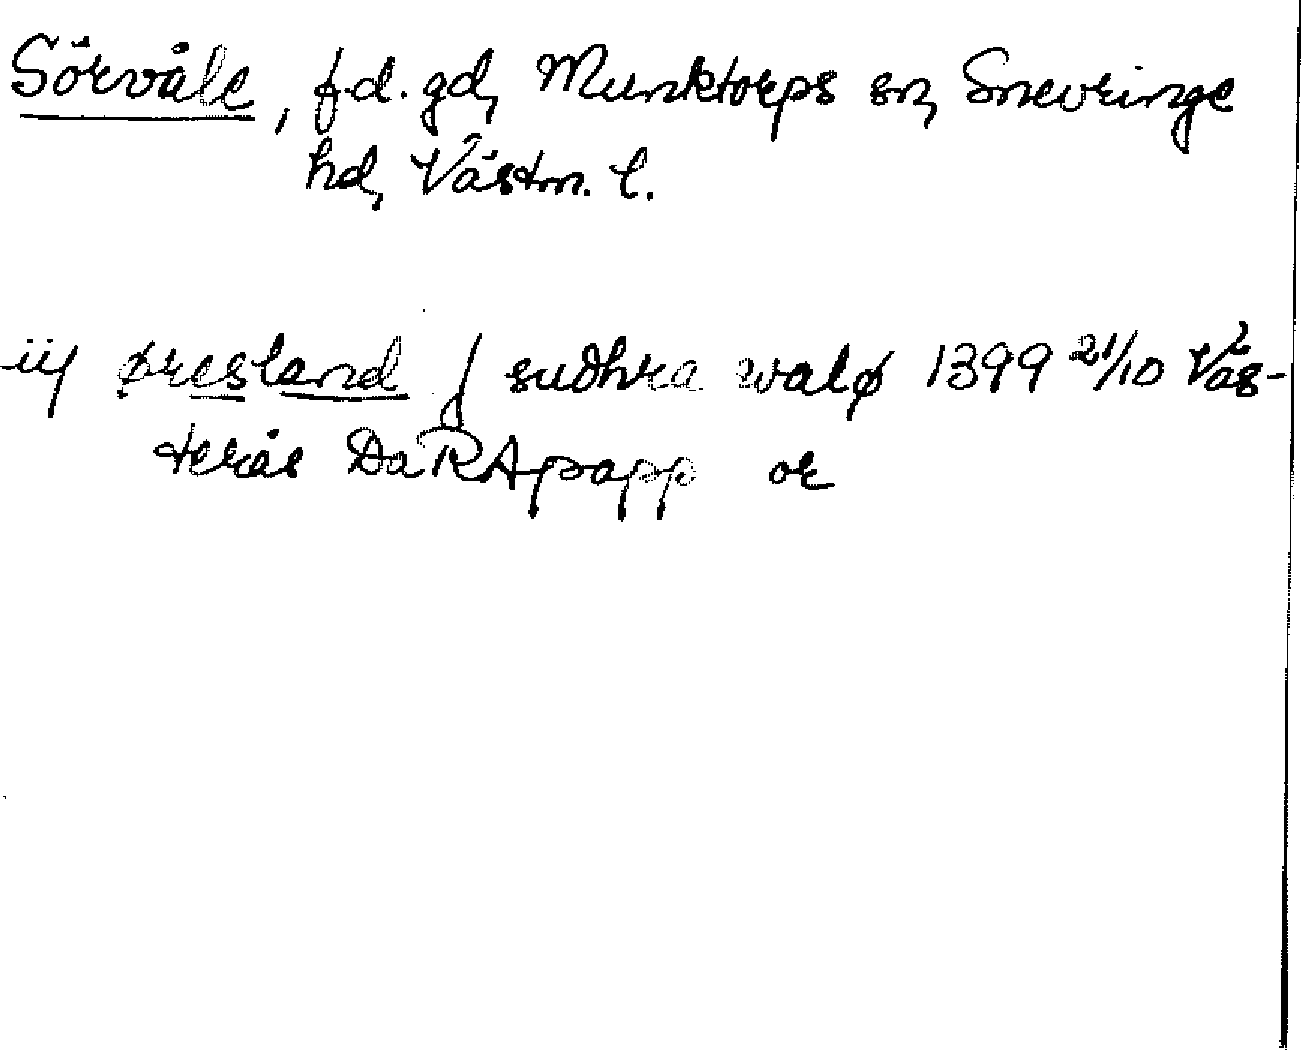 Sörvåle, f.d. gd, Munktorps sn, Snevringe
hd, Västm. l.
iij øresland j sudhra walø 1399 21/10 Väs-
terås Da RApapp or